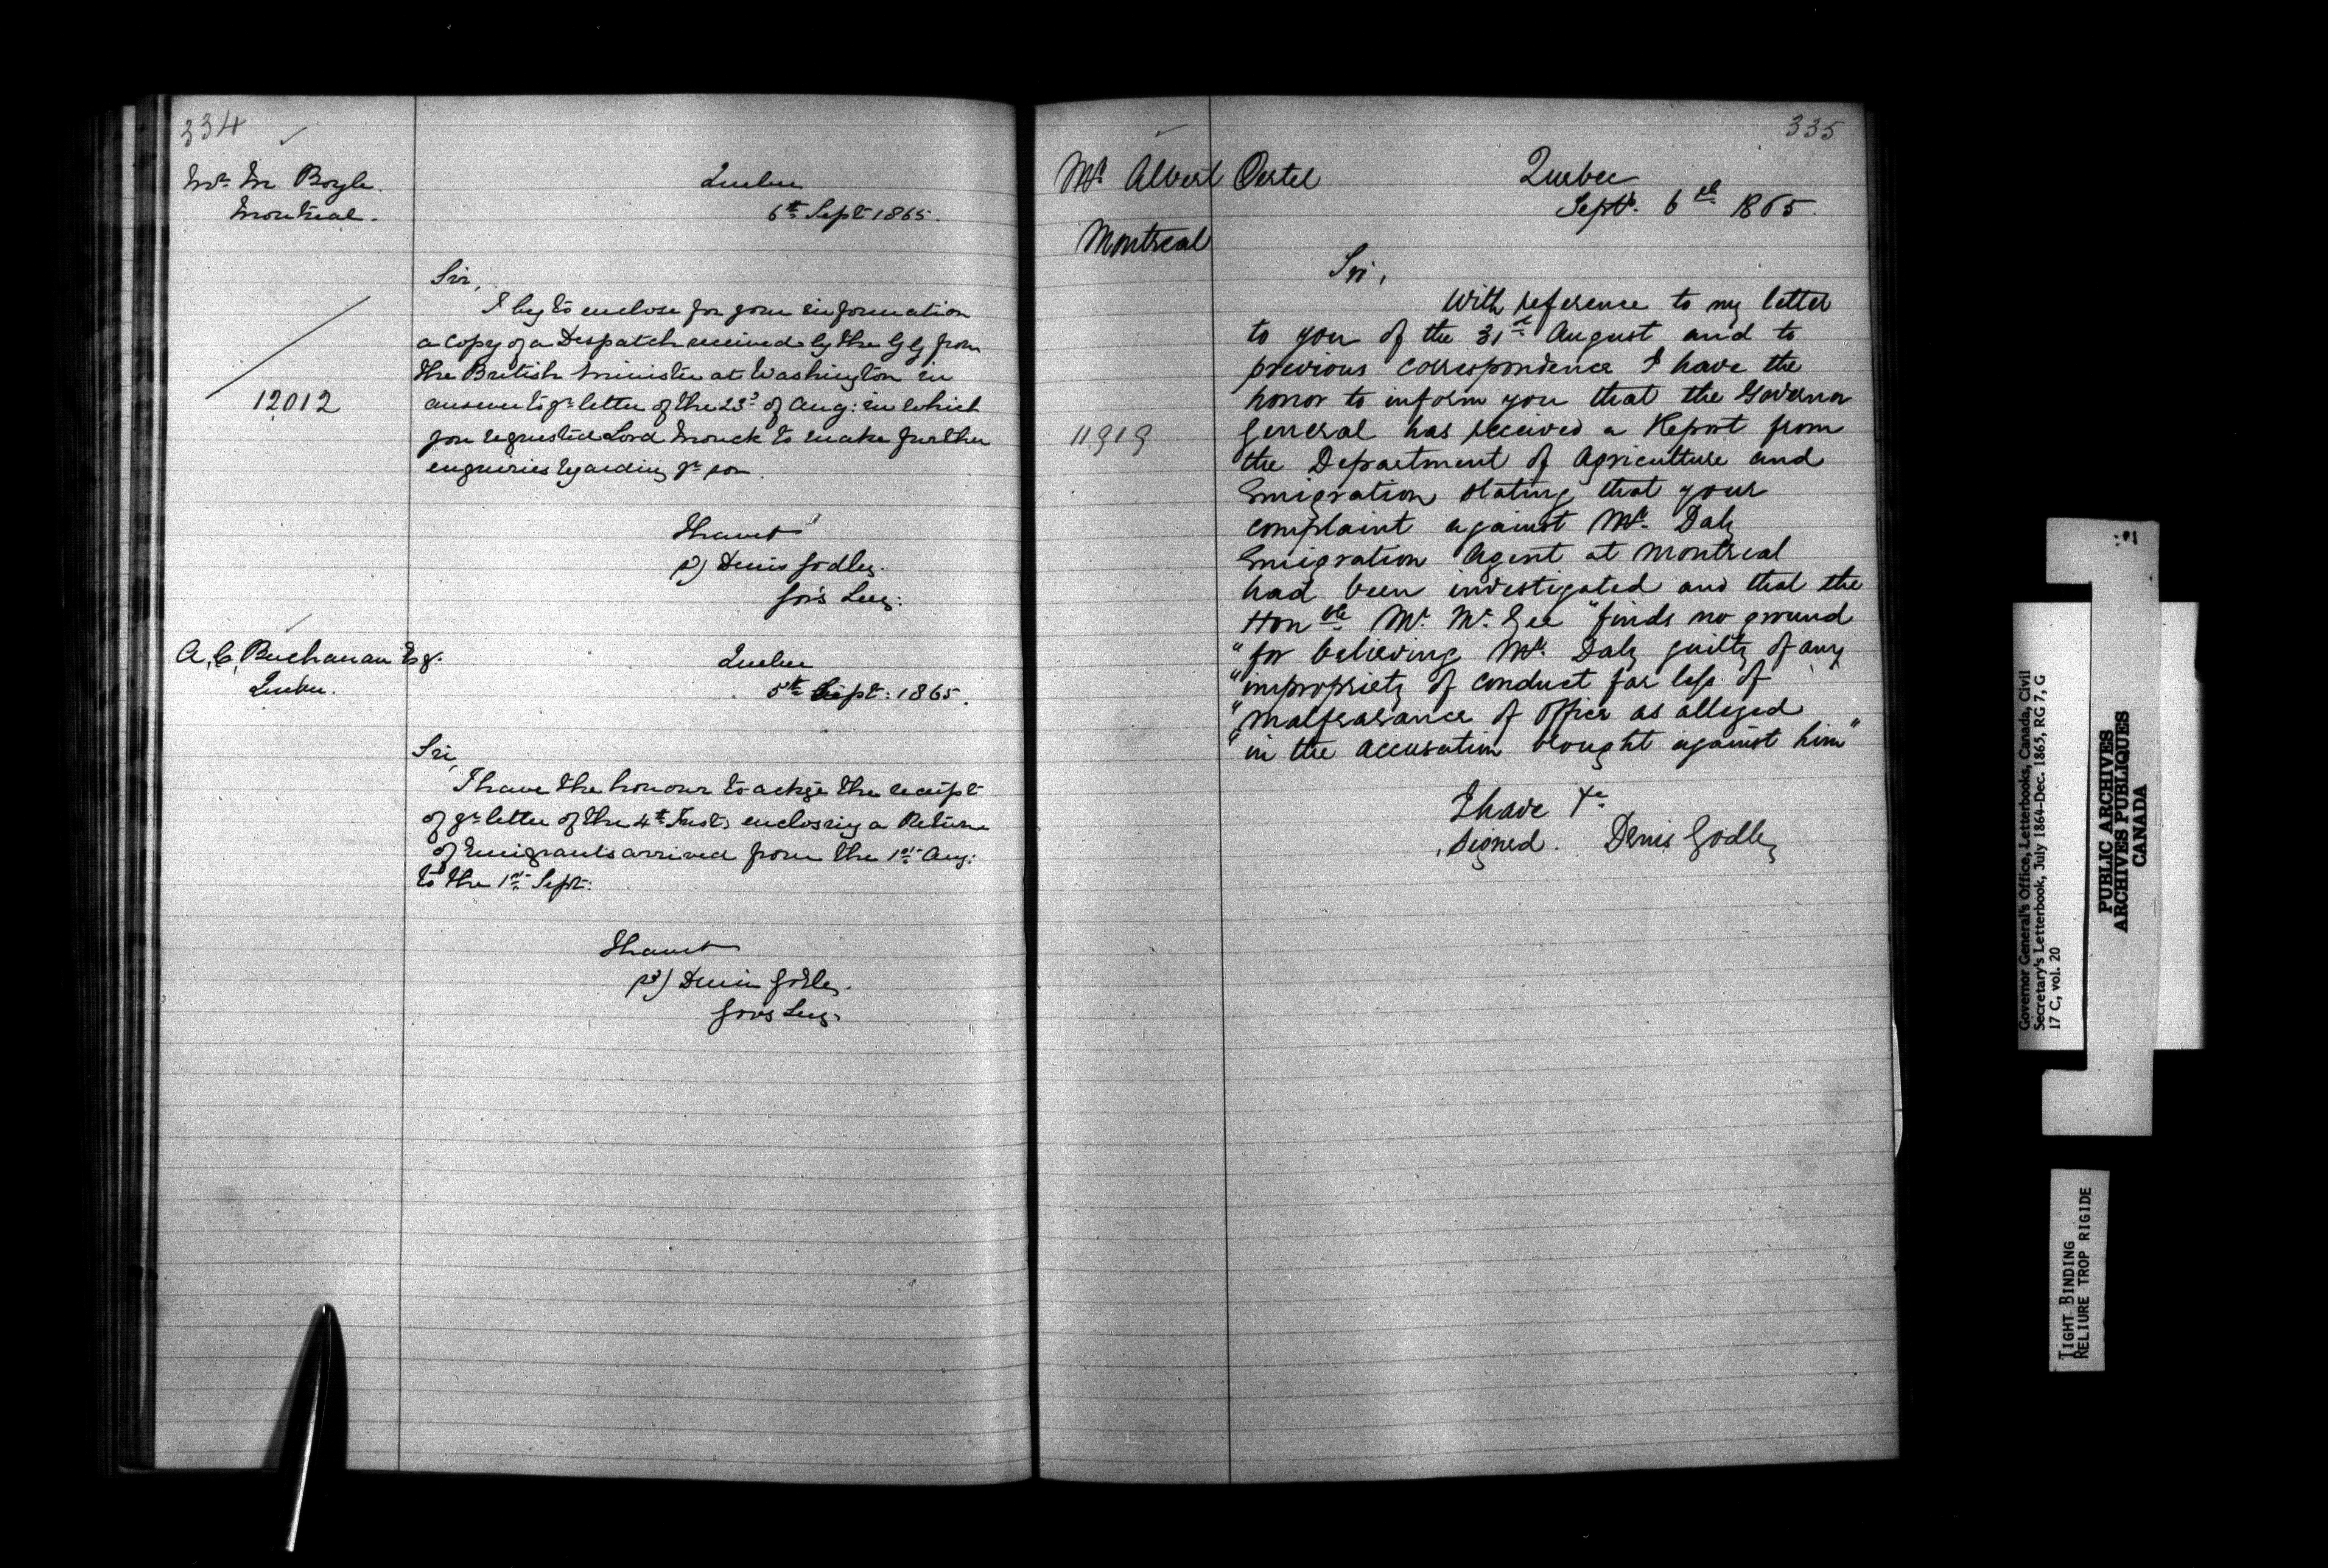 334
Mr. M. Boyle.
Montreal.
Quebec
6th Sept 1865.
Sir,
I beg to enclose for your information
a copy of a Despatch received by the GG from
the British Minister at Washington in
12012
answer to yr letter of the 23d of Aug: in which
you requested Lord Monck to make further
enquiries regarding yr son.
I have &
sd) Denis Godley.
Gov's Secy:
A. C. Buchanan Esq.
Quebec.
Quebec
5th Sept: 1865.
Sir,
I have the honour to ackge the receipt
of yr letter of the 4th Inst; enclosing a Return
of Emigrants arrived from the 1st Aug:
to the 1st Sept:
I have &
sd) Denis Godley.
Gov's Secy.
335
Mr Albert Oertel
Montreal
Quebec
Sept. 6th 1865.
Sir,
With reference to my letter
to you of the 31st August and to
previous correspondence I have the
honor to inform you that the Governor
11919
General has received a Report from
the Department of Agriculture and
Emigration stating that your
complaint against Mr. Daly
Emigration Agent at Montreal
had been investigated and that the
Honble Mr. McGee "finds no ground
"for believing Mr. Daly guilty of any
"impropriety of conduct far less of
"malfeasance of office as alleged
"in the accusation brought against him"
I have &c
signed. Denis Godley
Governor General's Office, Letterbooks, Canada, Civil
Secretary's Letterbook, July 1864-Dec. 1865, RG 7, G
17 C, vol. 20
PUBLIC ARCHIVES
ARCHIVES PUBLIQUES
CANADA
TIGHT BINDING
RELIURE TROP RIGIDE